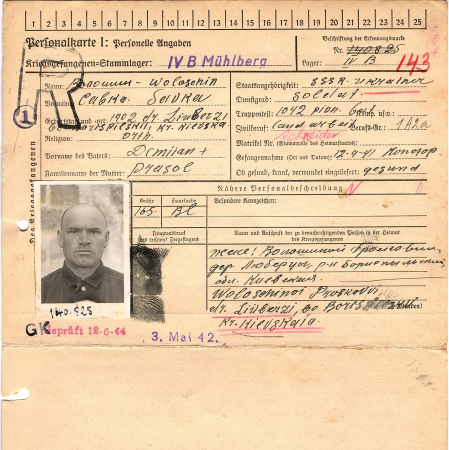 1 2 3 4 5 6 7 8 9 10 11 12 13 14 15 16 17 18 19 20 21 22 23 24 25
Personalkarte I: Personelle Angaben
Beschriftung der Erkennungsmarke
Kriegsgefangenen-Stammlager: IV B Mühlberg
Nr. 140825
Lager: IV B
143
Name: Волошин - Woloschin
Staatsangehörigkeit: SSSR - Ukrainer
Vorname: Савка Savka
Dienstgrad: Soldat
Truppenteil: 1042 pion. bat
1902
Religion: orth.
Zivilberuf: Landarbeit Berufs-Gr.: 182a
Schneider
Matrikel Nr. (Stammrolle des Heimatstaates):
Vorname des Vaters: Demian +
Gefangennahme (Ort und Datum): 12-9-41 Konotop
Familienname der Mutter: Prasol
Ob gefund, krank, verwundet eingeliefert: gesund
Des Kriegsgefangenen
1
R
Nähere Personalbeschreibung
N
Größe
Haarfarbe
Besondere Kennzeichen:
165
Bl
Fingerabdruck
des rechten! Zeigefingers
Name und Anschrift der zu benachrichtigenden Person in der Heimat
des Kriegsgefangenen
жене: Волошиной
дер. Люберцы, р-н Бориспольский
обл. Киевская
Woloschinoi Proskovi
d. Liuberzi,
Kr. Kievskaia
140825
GK Geprüft 12-6-44
3. Mai 42.